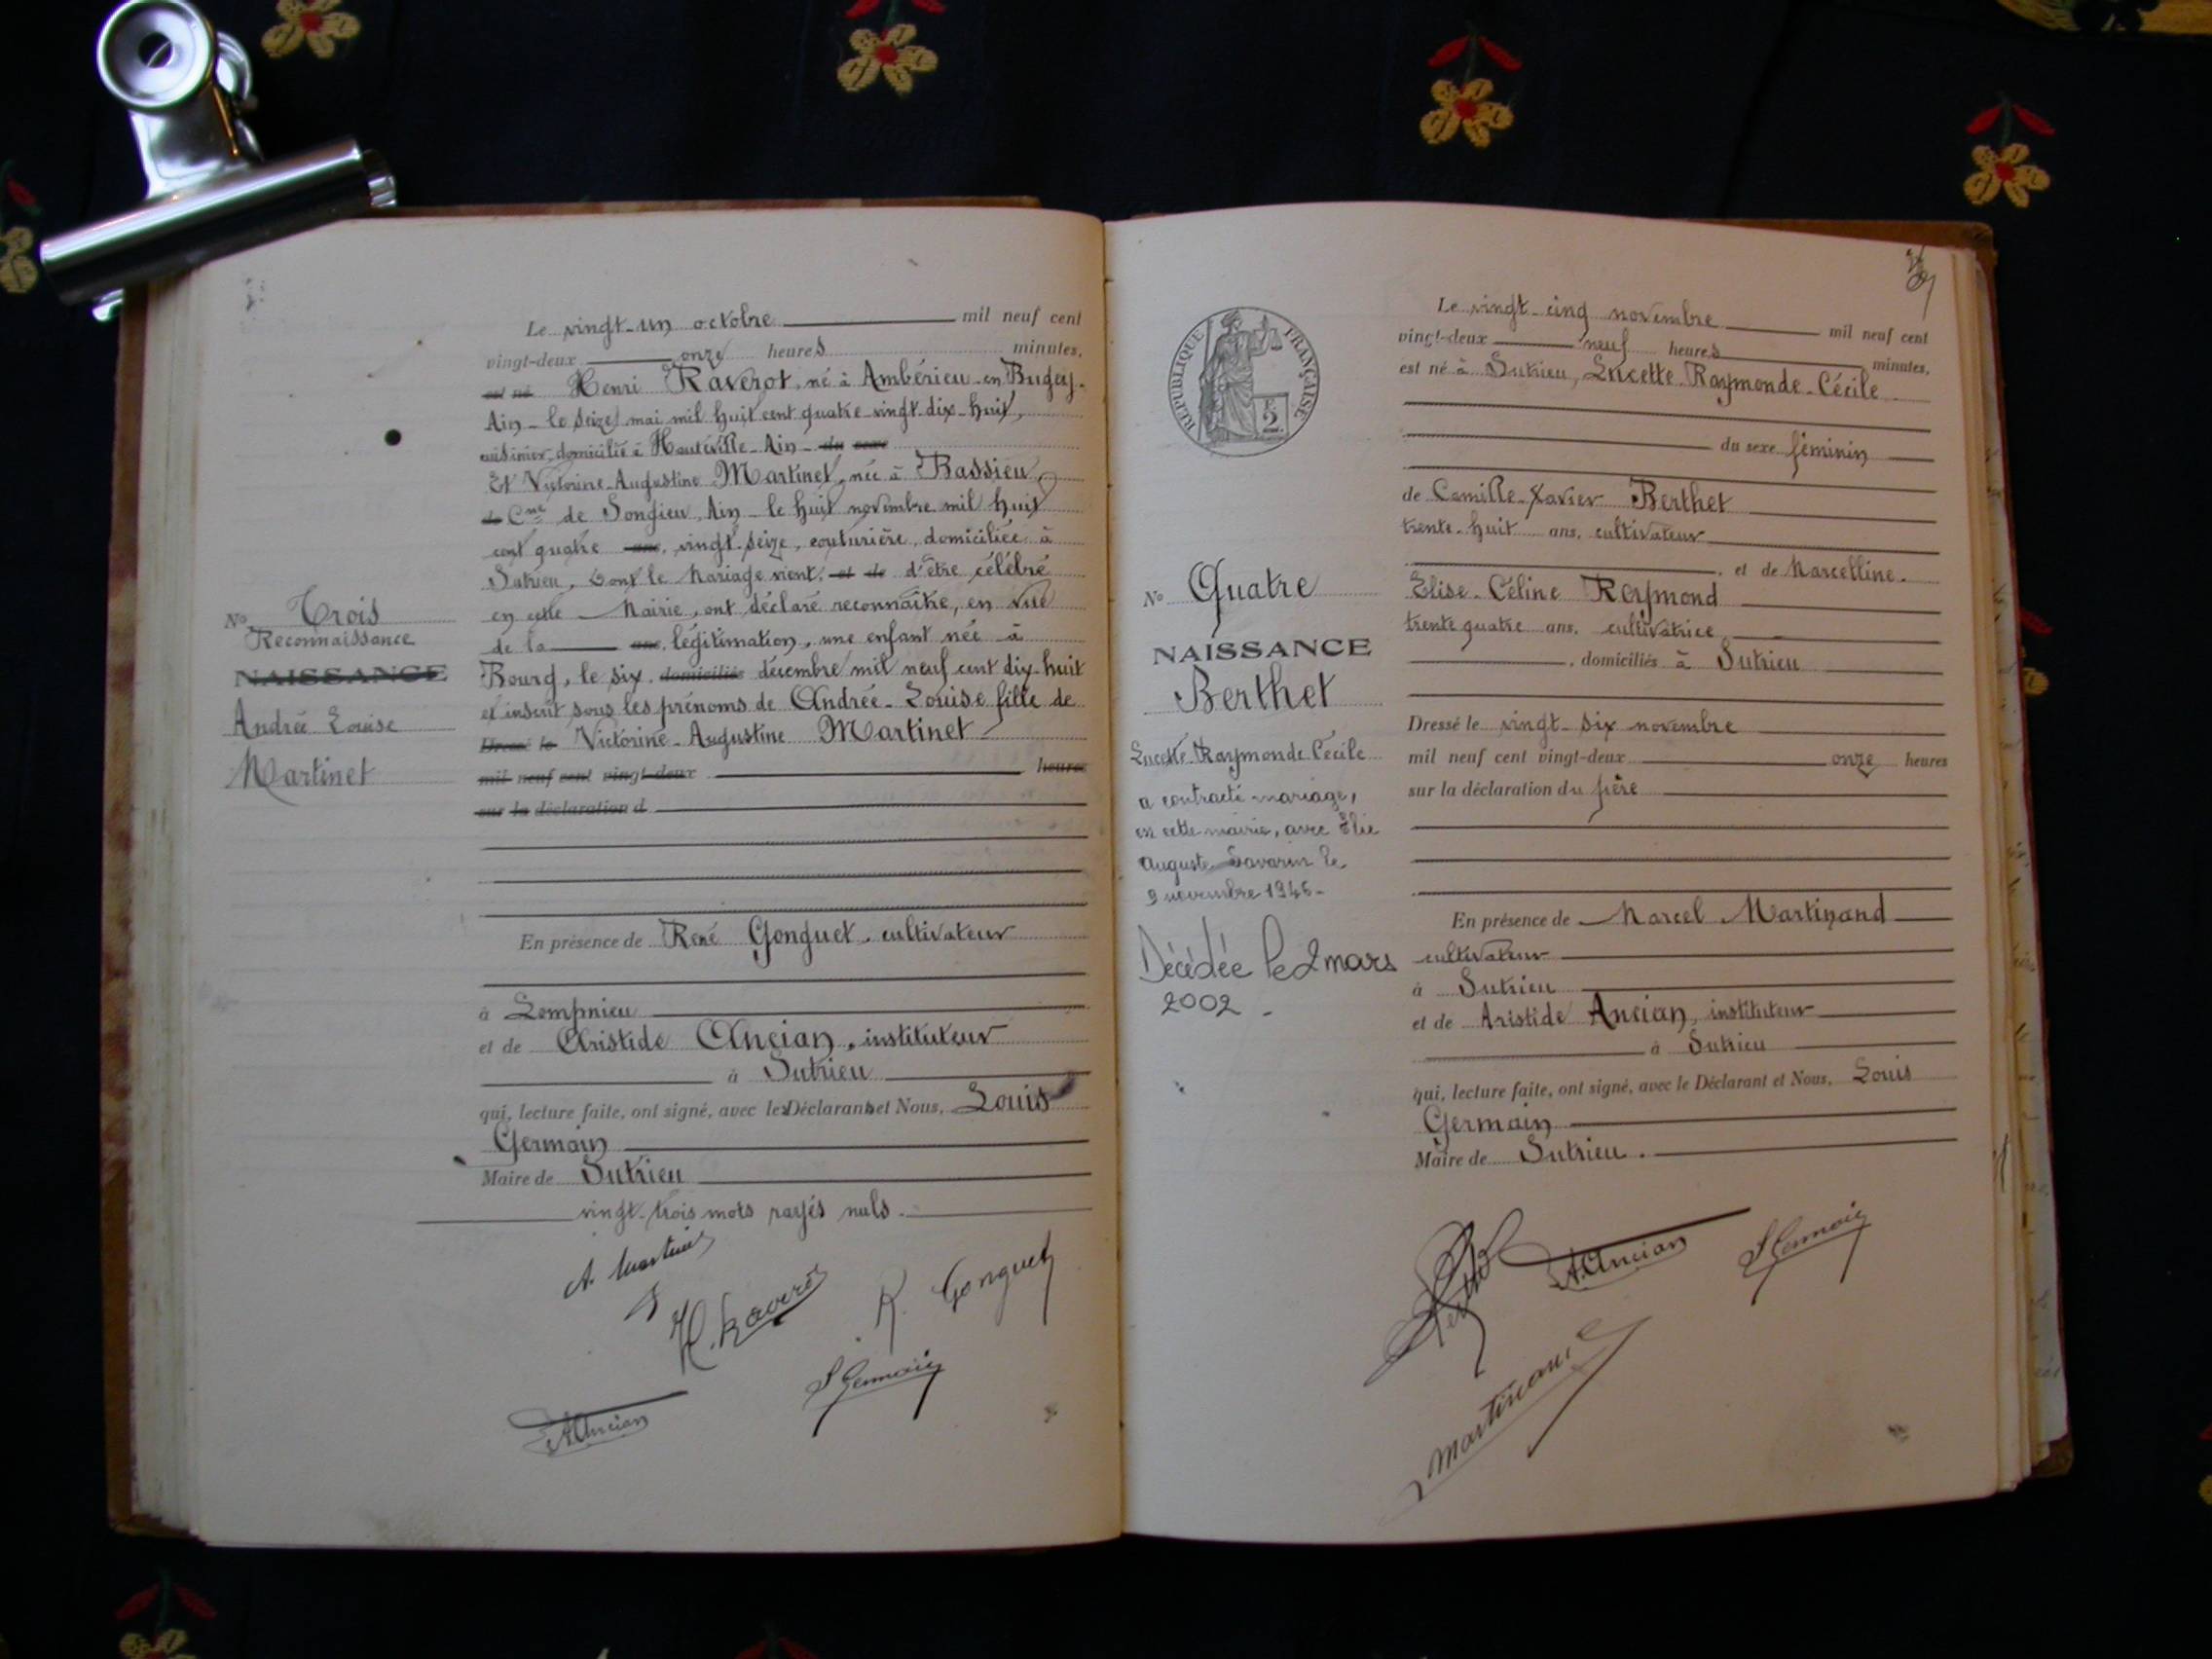 Le vingt-un octobre mil neuf cent
vingt-deux onze heures minutes,
est né Henri Raverot, né à Ambérieu-en-Bugey.
Ain - le seize mai mil huit cent quatre-vingt-dix-huit,
cuisinier, domicilié à Hauteville-Ain - du sexe
Et Victorine-Augustine Martinet, née à Bassieu,
de Cne de Songieu, Ain - le huit novembre mil huit
cent quatre ans, vingt-seize, couturière, domiciliée à
Sutrieu, dont le Mariage vient, et de d'être célébré
en cette Mairie, ont déclaré reconnaître, en vue
de la ans, légitimation, une enfant née à
Bourg, le six, domiciliés décembre mil neuf cent dix-huit
et inscrit sous les prénoms de Andrée-Louise fille de
Dressé le Victorine-Augustine Martinet
mil neuf cent vingt-deux heures
sur la déclaration d
No Trois
Reconnaissance
NAISSANCE
Andrée Louise
Martinet
En présence de René Gonguet, cultivateur
à Lompnieu
et de Aristide Ancian, instituteur
à Sutrieu
qui, lecture faite, ont signé, avec les Déclarants et Nous, Louis
Germain
Maire de Sutrieu
vingt-trois mots rayés nuls.
A. Martinet
H. Raverot
R. Gonguet
L Germain
A Ancian
REPUBLIQUE FRANÇAISE
2
Le vingt-cinq novembre mil neuf cent
vingt-deux neuf heures minutes,
est né à Sutrieu, Lucette-Raymonde-Cécile
du sexe féminin
de Camille-Xavier Berthet
trente-huit ans, cultivateur
, et de Marcelline-
Elise-Céline Reymond
trente quatre ans, cultivatrice
, domiciliés à Sutrieu
Dressé le vingt-six novembre
mil neuf cent vingt-deux onze heures
sur la déclaration du père
No Quatre
NAISSANCE
Berthet
Lucette-Raymonde-Cécile
a contracté mariage,
en cette mairie, avec Elie
Auguste Savarin le
9 novembre 1946-
Décédée le 2 mars
2002 -
En présence de Marcel Martinand
cultivateur
à Sutrieu
et de Aristide Ancian, instituteur
à Sutrieu
qui, lecture faite, ont signé, avec le Déclarant et Nous, Louis
Germain
Maire de Sutrieu.
Berthet
A. Ancian
L Germain
Martinand